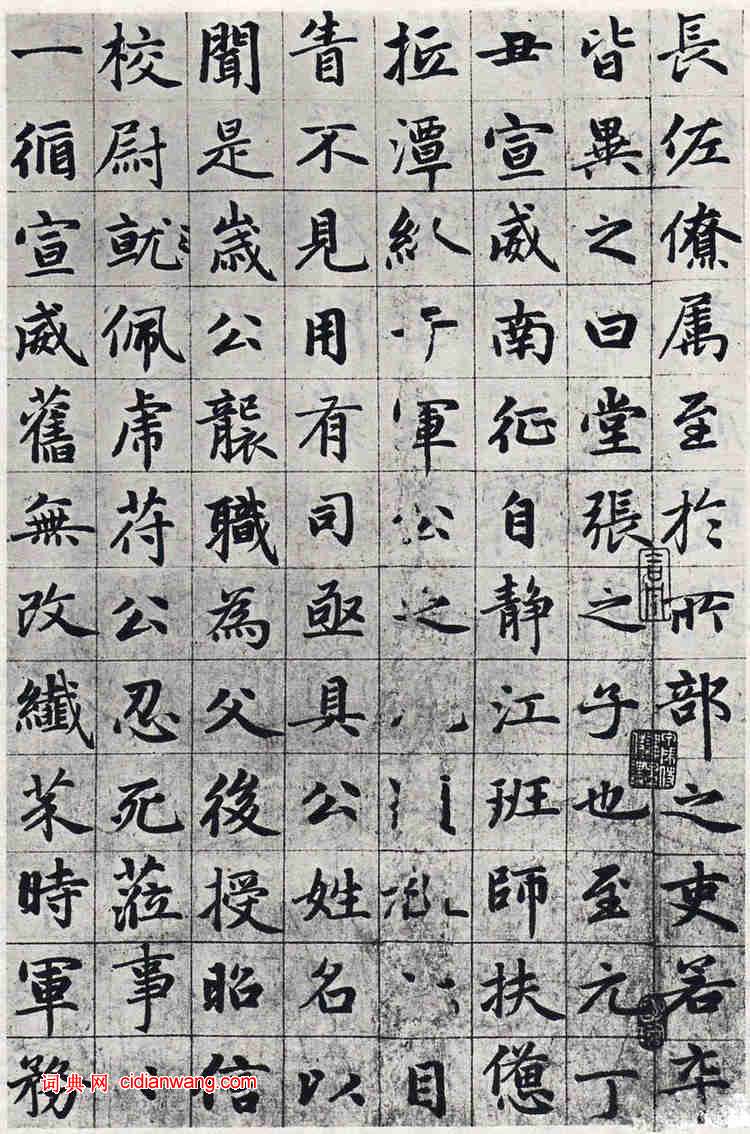 長佐僚属至於所部之吏若卒
皆異之曰堂張之子也至元丁
丑宣威南征自静江班師扶憊
抵潭于軍公之目
眚不見用有司亟具公姓名以
聞是歲公襲職為父後授昭信
校尉就佩虎符公忍死蒞事
一循宣威舊無改纖時軍務
词典网 cidianwang.com